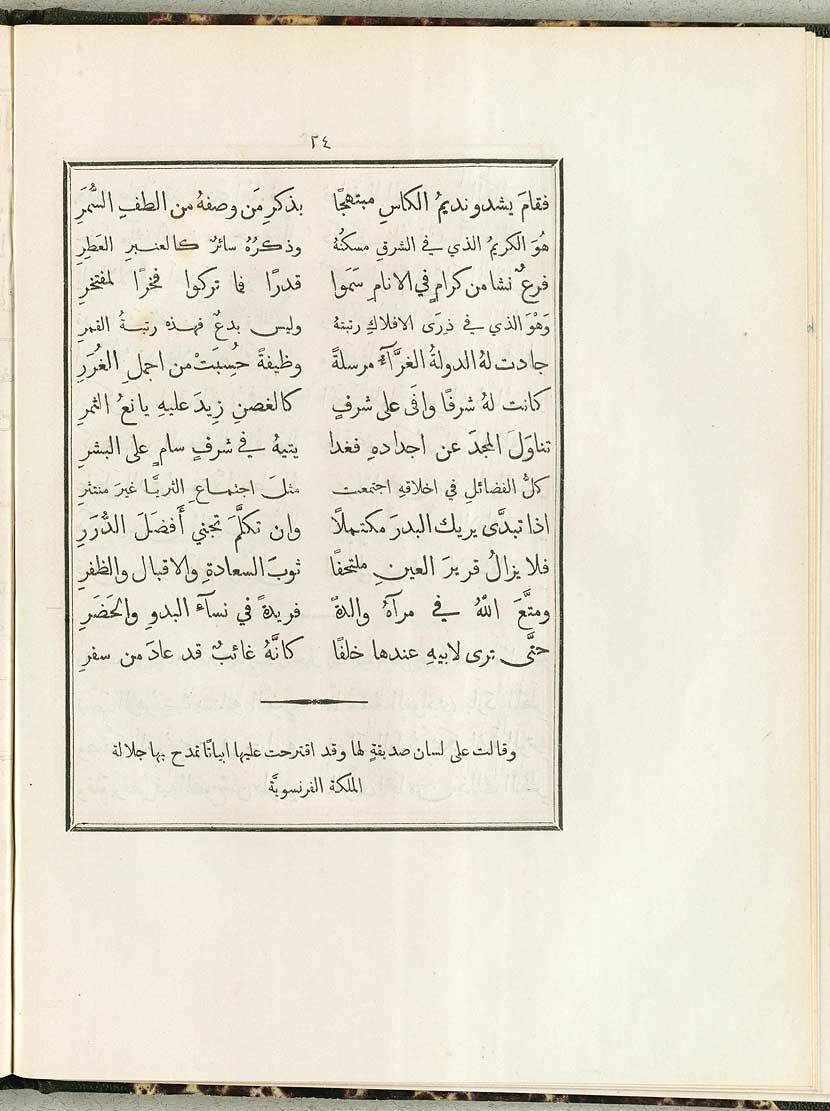 ٢٤
فقامَ يشدو نديمُ الكاسِ مبتهجًا بذكرِ مَن وصفهُ من الطفِ السُّمَرِ
هُوَ الكريمُ الذي في الشرقِ مسكنُهُ وذكرُهُ سائرٌ كالعنبرِ العَطِرِ
فرعٌ نشا من كرامٍ في الانامِ سَمَوا قدرًا فما تركوا فخرًا لمفتخرِ
وَهْوَ الذي في ذرَى الافلاكِ رتبتهُ وليس بدعٌ فهذه رتبةُ القمرِ
جادت لهُ الدولةُ الغرَّآءُ مرسلةً وظيفةً حُسِبَتْ من اجملِ الغُرَرِ
كانت لهُ شرفًا وافَى على شرفٍ كالغصنِ زِيدَ عليهِ يانعُ الثمرِ
تناوَلَ المجدَ عن اجدادهِ فغدا يتيهُ في شرفٍ سامٍ على البشرِ
كلُّ الفضائلِ في اخلاقهِ اجتمعت مثلَ اجتماعِ الثريَّا غيرَ منتثرِ
اذا تبدَّى يريك البدرَ مكتملًا وان تكلَّمَ تجني أَفضَلَ الدُّرَرِ
فلا يزالُ قريرَ العينِ ملتحفًا ثوبَ السعادةِ والاقبال والظفرِ
ومتَّعَ اللهُ في مرآهُ والدةً فريدةً في نسآءِ البدوِ والحَضَرِ
حتَّى ترى لابيهِ عندها خلفًا كانَّهُ غائبٌ قد عادَ من سفرِ
وقالت على لسان صديقةٍ لها وقد اقترحت عليها ابياتًا تمدح بها جلالة
الملكة الفرنسويَّة